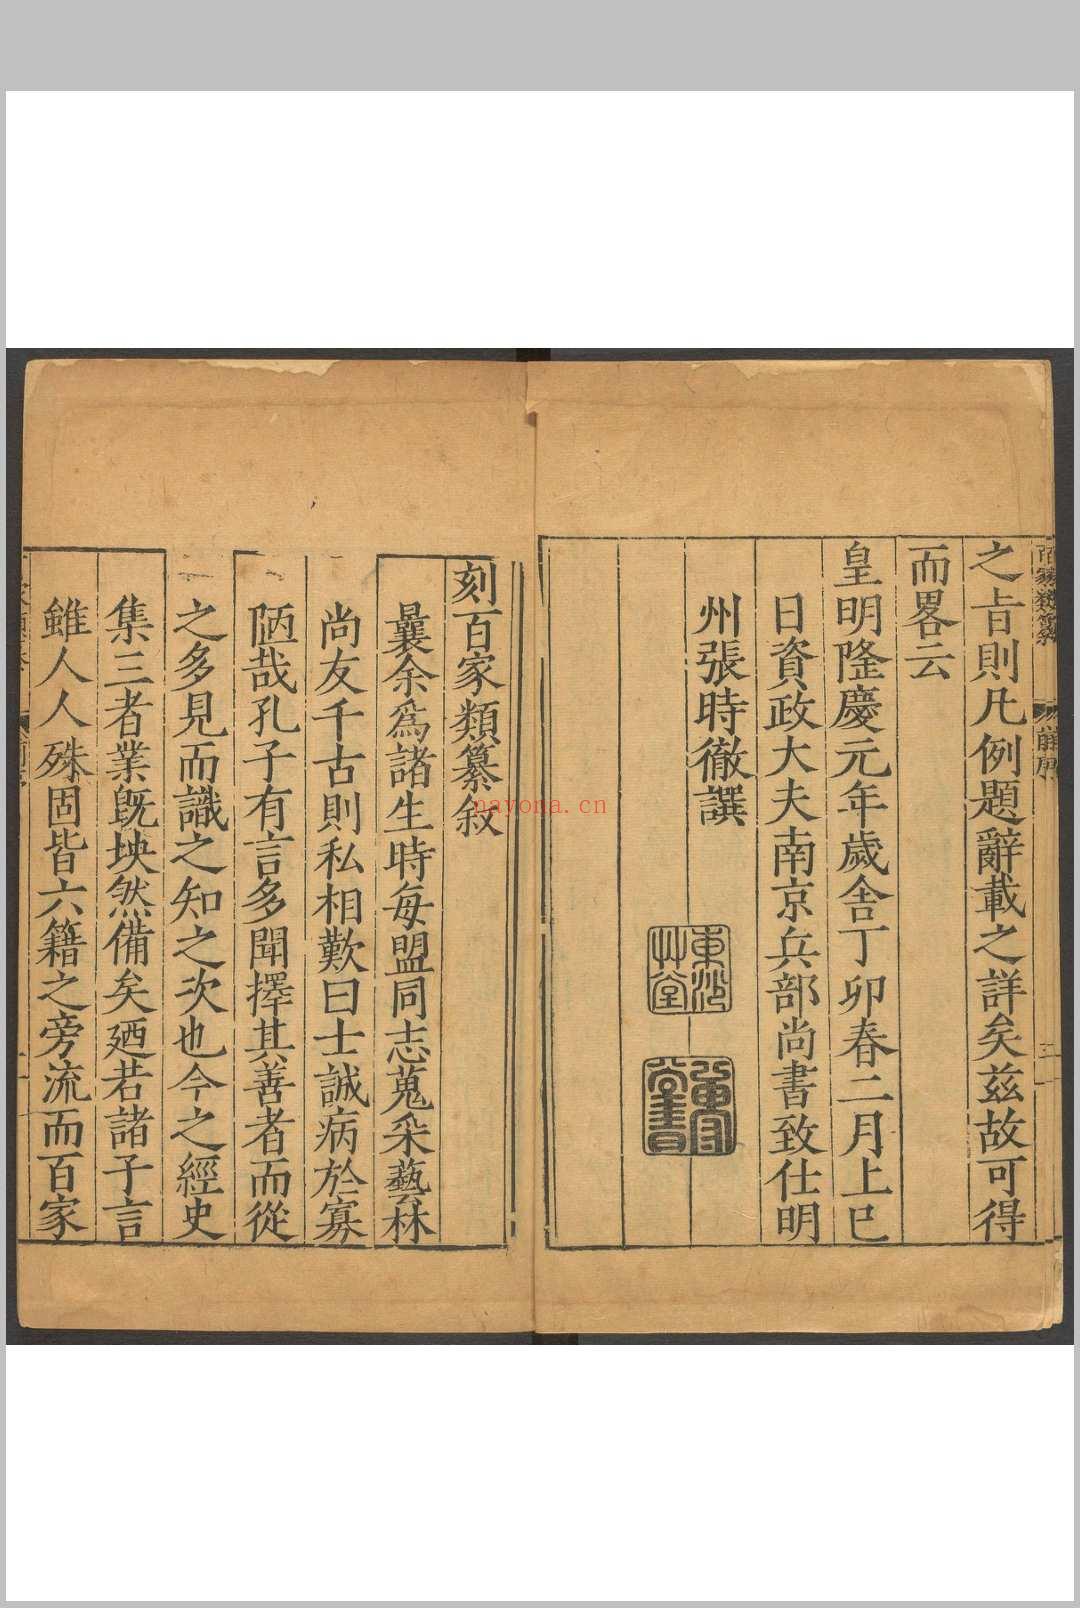 百家類纂
前序
三
之旨則凡例題辭載之詳矣茲故可得
而畧云
皇明隆慶元年歲舍丁卯春二月上巳
日資政大夫南京兵部尚書致仕明
州張時徹譔
東沙
艸堂
刻百家類纂敘
曩余爲諸生時每盟同志蒐采藝林
尚友千古則私相歎曰士誠病於寡
陋哉孔子有言多聞擇其善者而從
之多見而識之知之次也今之經史
集三者業旣坱然備矣廼若諸子言
雖人人殊固皆六籍之旁流而百家
nayona.cn